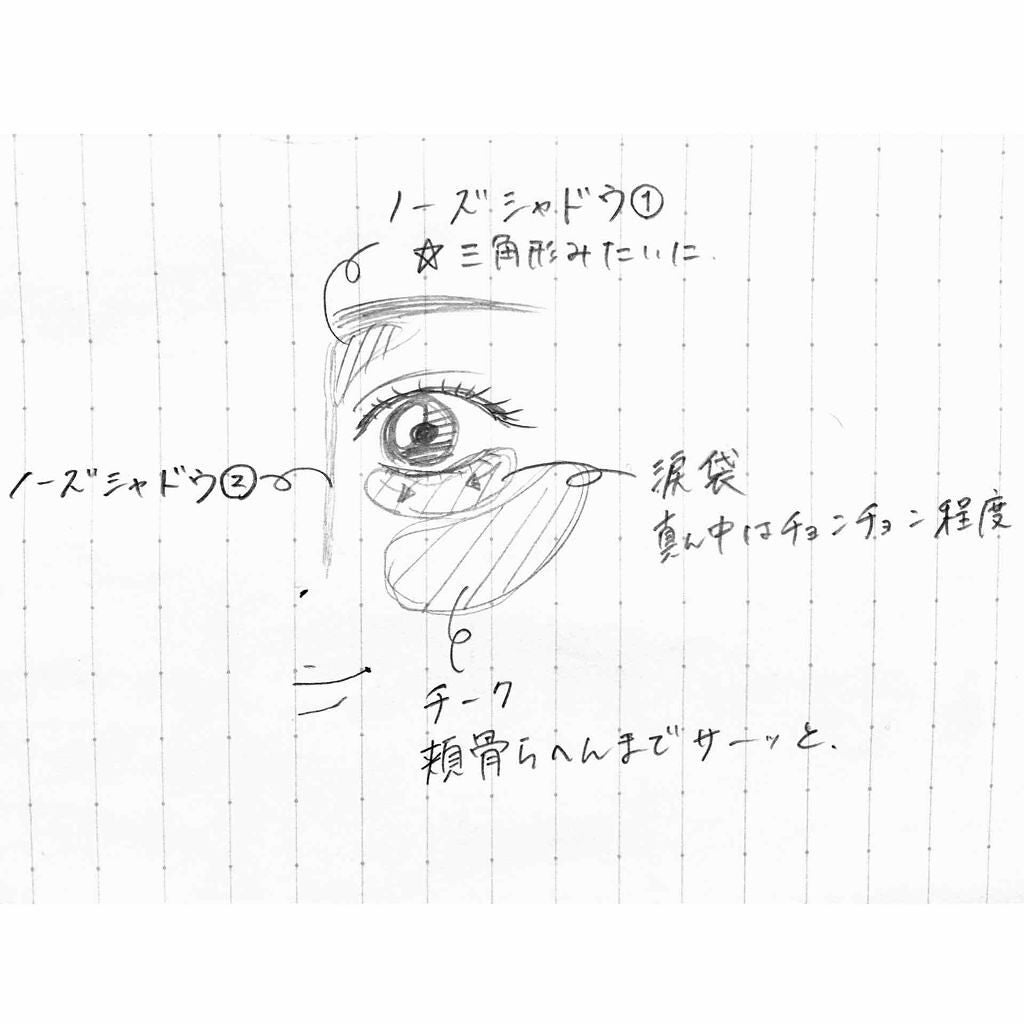 ノーズシャドウ①
☆三角形みたいに.
ノーズシャドウ②
涙袋
真ん中はチョンチョン程度
チーク
頬骨らへんまでサーッと.